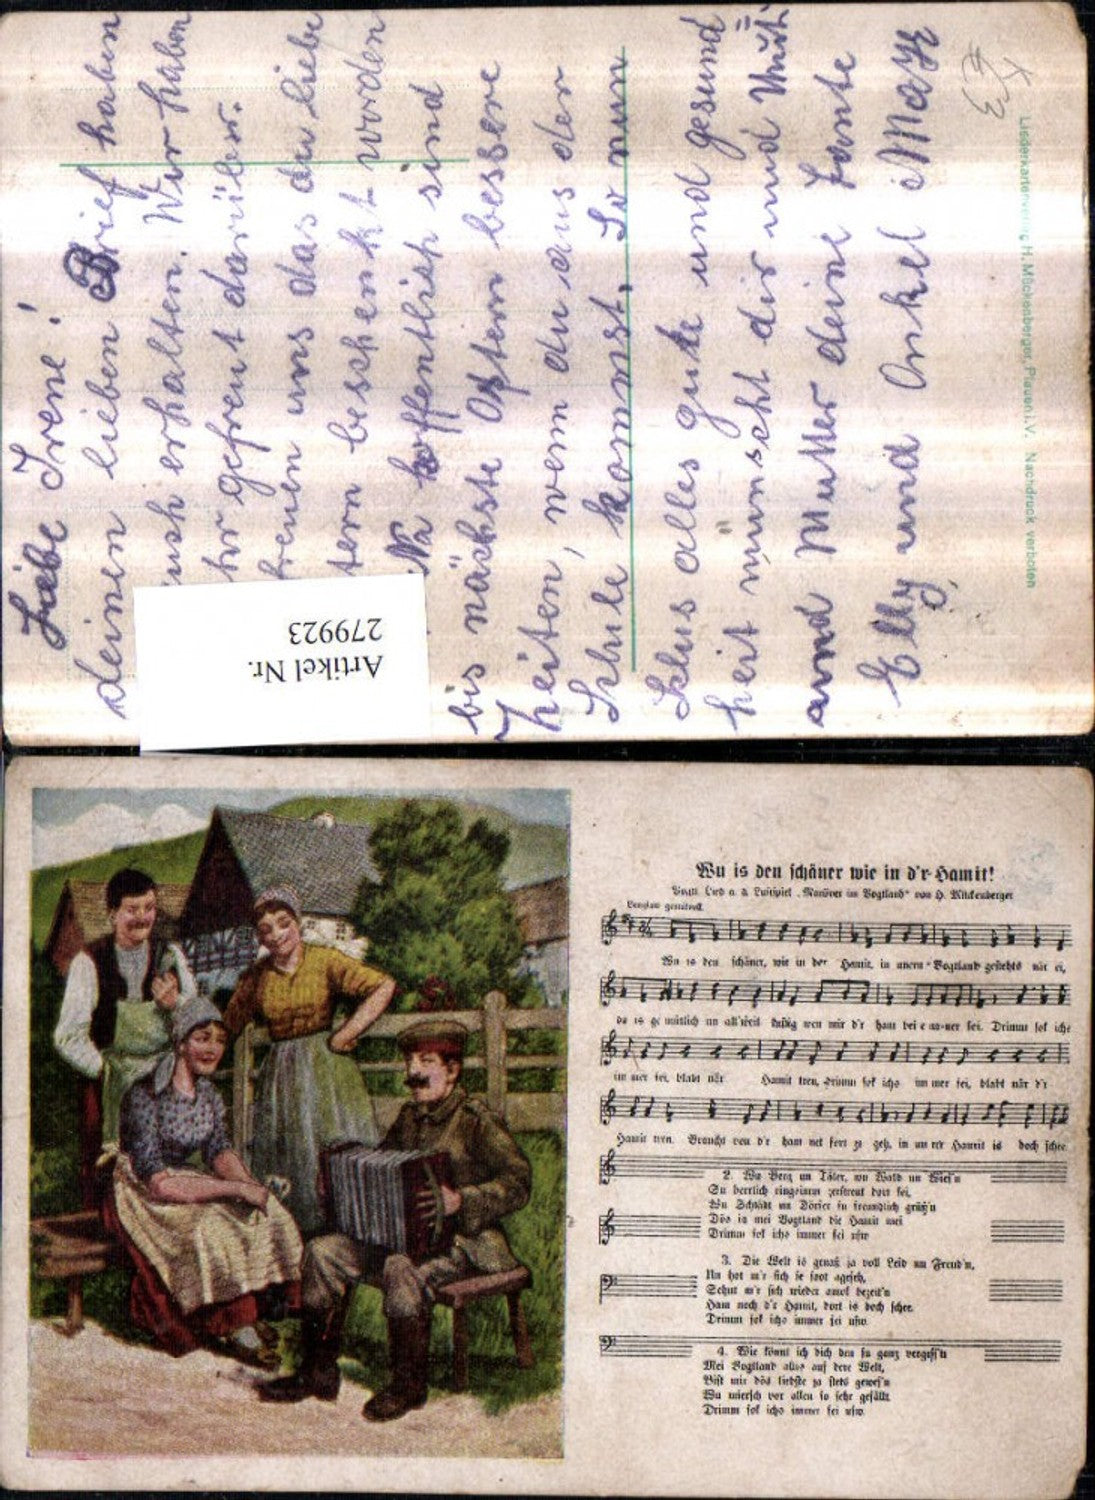 Liebe Irene!
deinen lieben Brief haben
erhalten. Wir haben
gefreut darüber.
freuen uns das du liebe
tern beschenkt worden
Na hoffentlich sind
bis nächste Ostern bessere
Zeiten, wenn du aus der
Schule kommst. So nun
alles gute und gesund
heit wünscht dir und Mutti
and Mutter deine Tante
Elly und Onkel Max
Liederkartenverlag H. Mückenberger, Plauen i.V. Nachdruck verboten
Artikel Nr.
279923
Wu is den schäner wie in d'r Hamit!
Vogtl. Lied a. d. Lustspiel „Manöver im Vogtland“ von H. Mückenberger
Wu is den schäner, wie in der Hamit, in unern Vogtland gefiehts mir ei,
do is gemütlich un all'weil lustig wen mir d'r ham bei enanner sei. Drimm sok ichs
immer sei, blabt när Hamit treu, drimm sok ichs immer sei, blabt när d'r
Hamit treu. Braucht von d'r ham net fort ze geh, in unrer Hamit is doch schee.
2. Wu Berg un Täler, wu Wald un Wies'n
Su herrlich ringsimm zerstreut dort sei,
Wu Schtädt un Dörfer su freundlich grüß'n
Dös is mei Vogtland die Hamit mei
Drimm sok ichs immer sei usw.
3. Die Welt is genaß ja voll Leid un Freud'n,
Un hot m'r sich se soot agseh,
Sehnt m'r sich wieder amol bezeit'n
Ham noch d'r Hamit, dort is doch schee.
Drimm sok ichs immer sei usw.
4. Wie könnt ich dich den su ganz vergess'n
Mei Vogtland alles auf dere Welt,
Bist mir dös liebste ja stets gewes'n
Wu miersch vor allen so sehr gefällt
Drimm sok ichs immer sei usw.